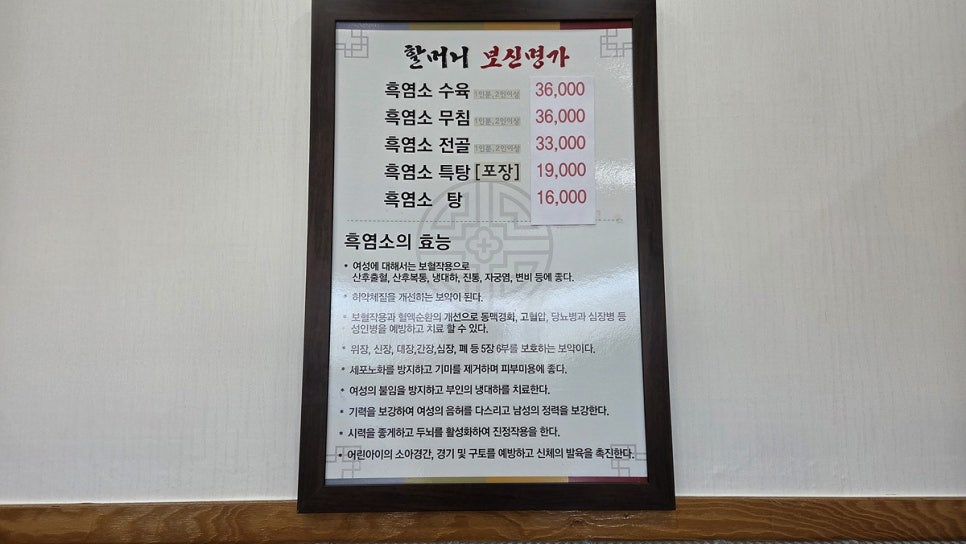 할머니 보신명가
흑염소 수육 1인분, 2인이상 36,000
흑염소 무침 1인분, 2인이상 36,000
흑염소 전골 1인분, 2인이상 33,000
흑염소 특탕 [포장] 19,000
흑염소 탕 16,000
흑염소의 효능
• 여성에 대해서는 보혈작용으로
산후출혈, 산후복통, 냉대하, 진통, 자궁염, 변비 등에 좋다.
• 허약체질을 개선하는 보약이 된다.
• 보혈작용과 혈액순환의 개선으로 동맥경화, 고혈압, 당뇨병과 심장병 등
성인병을 예방하고 치료 할 수 있다.
• 위장, 신장, 대장,간장,심장, 폐 등 5장 6부를 보호하는 보약이다.
• 세포노화를 방지하고 기미를 제거하며 피부미용에 좋다.
• 여성의 불임을 방지하고 부인의 냉대하를 치료한다.
• 기력을 보강하여 여성의 음허를 다스리고 남성의 정력을 보강한다.
• 시력을 좋게하고 두뇌를 활성화하여 진정작용을 한다.
• 어린아이의 소아경간, 경기 및 구토를 예방하고 신체의 발육을 촉진한다.